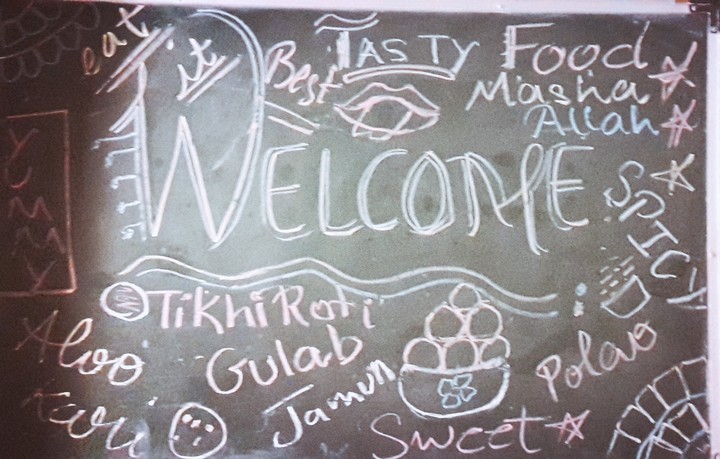 eat it
Best
TASTY Food
Masha Allah
WELCOME
YUMMY
SPICY
Tikhi Roti
Gulab Jamun
Aloo
Polao
Sweet